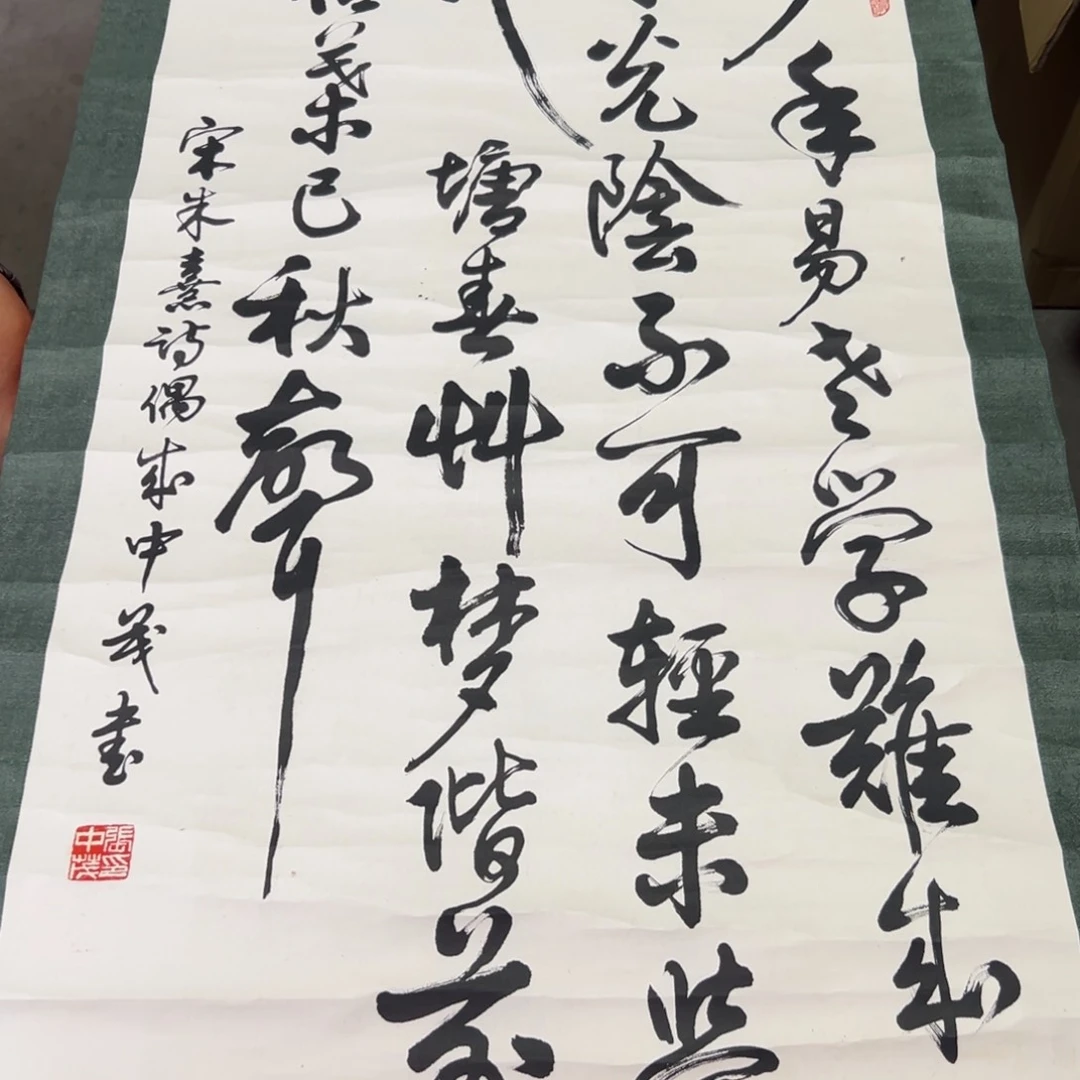 年易老学難成
光陰不可輕未覺
塘春艸梦階前
葉已秋聲
宋朱熹詩偶成中茂書
張印
中茂